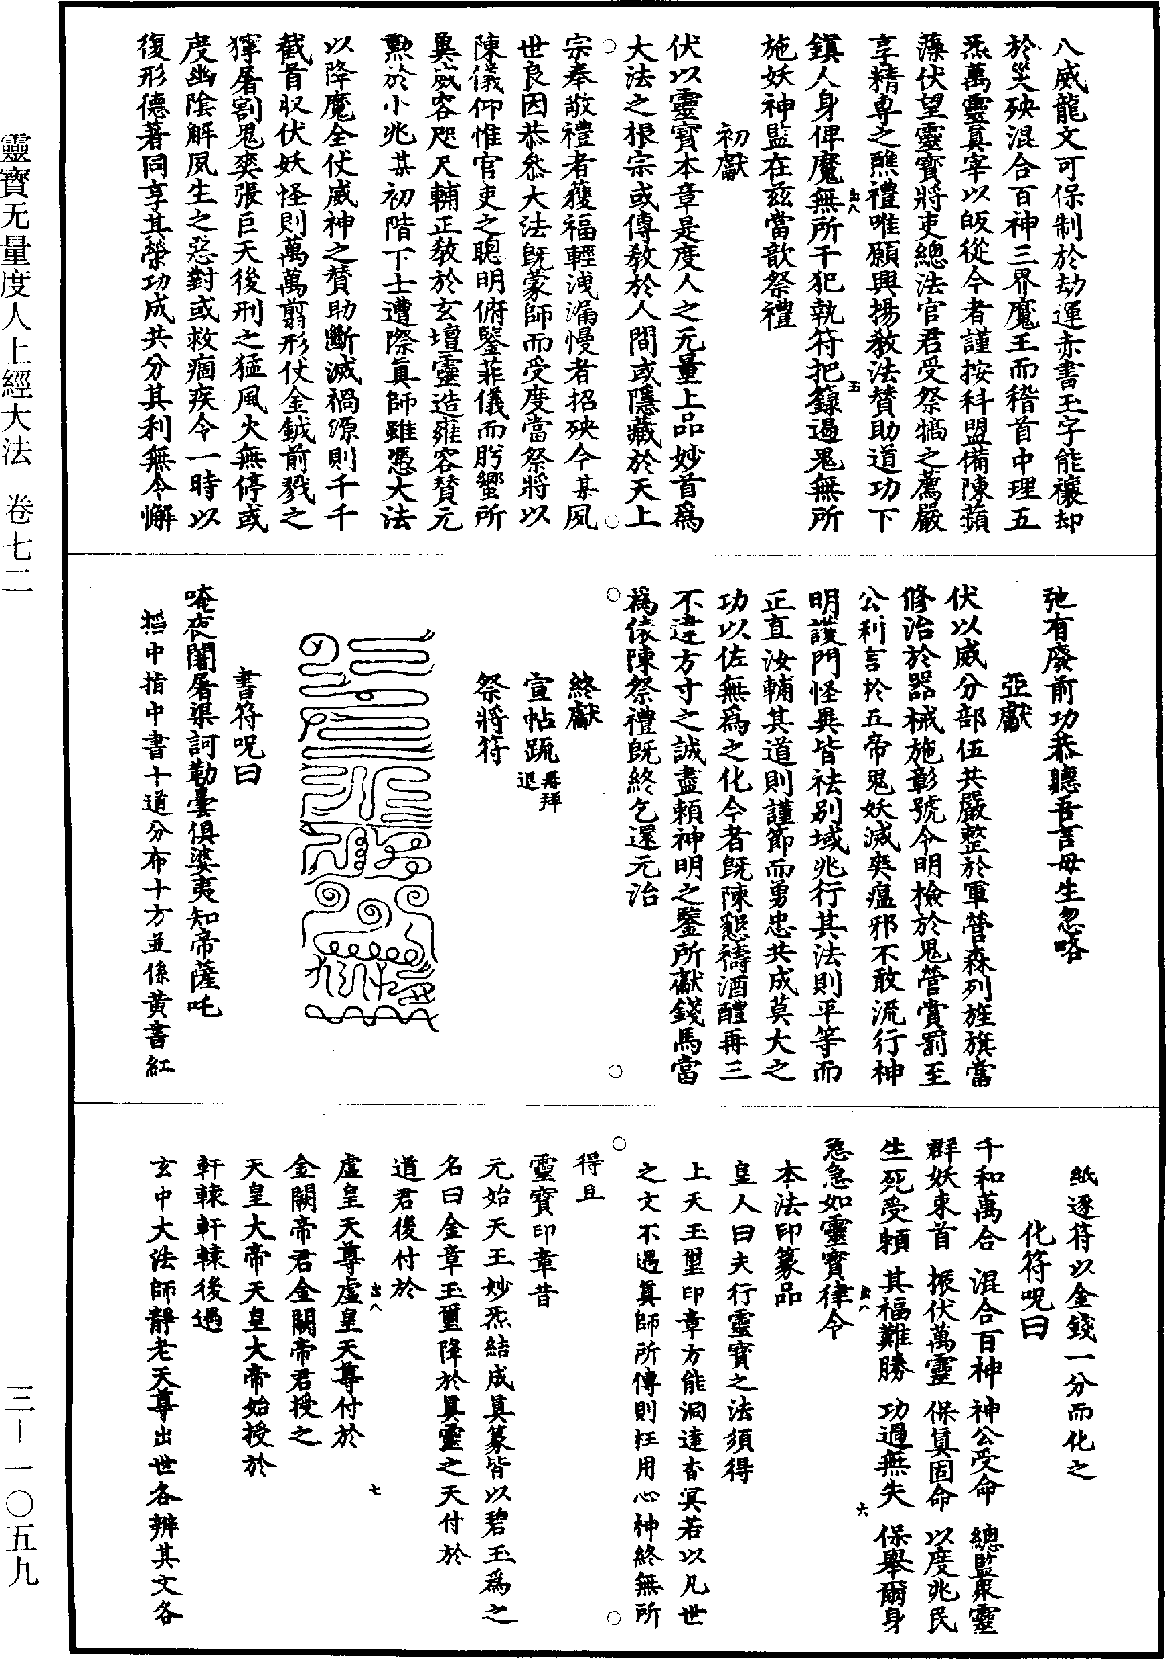 八威龍文可保制於劫運赤書玉字能禳却
於災殃混合百神三界魔王而稽首中理五
炁萬靈真宰以皈從今者謹按科盟備陳蘋
藻伏望靈寶將吏總法官君受祭犒之薦嚴
享精專之醮禮唯願興揚敎法賛助道功下
鎮人身俾魔無所干犯執符把籙遏鬼無所
施妖神監在兹當歆祭禮
初獻
伏以靈寶本章是度人之无量上品妙首為
大法之根宗或傳敎於人間或隱藏於天上
宗奉敬禮者獲福輕洩漏慢者招殃今某夙
世良因恭叅大法既蒙師而受度當祭將以
陳儀仰惟官吏之聰明俯鑒菲儀而肹蠁所
兾威容咫尺輔正敎於玄壇靈造雍容賛元
勲於小兆某初階下士遭際真師雖憑大法
以降魔全仗威神之賛助斷滅禍源則千千
截首収伏妖怪則萬萬翦形仗金鉞前戮之
獰屠割鬼爽張巨天後刑之猛風火無停或
度幽陰解夙生之惡對或救痼疾今一時以
復形德著同享其榮功成共分其利無令懈
弛有廢前功恭聽吾言毋生忽咯
亞獻
伏以威分部伍共嚴整於軍營森列旌旗當
修治於器械施彰號令明檢於鬼營賞罰至
公利言於五帝鬼妖滅爽瘟邪不敢流行神
明護門怪異皆袪别域兆行其法則平等而
正直汝輔其道則謹節而勇忠共成莫大之
功以佐無為之化今者既陳懇禱酒醴再三
不違方寸之誠盡頼神明之鑒所獻錢馬當
為依陳祭禮既終乞還元治
終獻
宣帖䟽再拜退
祭將符
書符呪曰
唵夜闍屠渠訶勒曇俱婆夷知帝薩吒
掐中指中書十道分布十方並係黃書紅
紙逐符以金錢一分而化之
化符呪曰
千和萬合 混合百神 神公受命 總監衆靈
群妖束首 振伏萬靈 保真固命 以度兆民
生死受頼 其福難勝 功過無失 保舉爾身
急急如靈寶律令
本法印篆品
皇人曰夫行靈寶之法須得
上天玉璽印章方能洞達杳冥若以凡世
之文不遇真師所傳則枉用心神終無所
得且
靈寶印章昔
元始天王妙炁結成真篆皆以碧玉為之
名曰金章玉璽降於真靈之天付於
道君後付於
虛皇天尊虛皇天尊付於
金闕帝君金闕帝君授之
天皇大帝天皇大帝始授於
軒轅軒轅後遇
玄中大法師靜老天尊出世各辨其文各
靈寶无量度人上經大法 卷七二
三－一〇五九